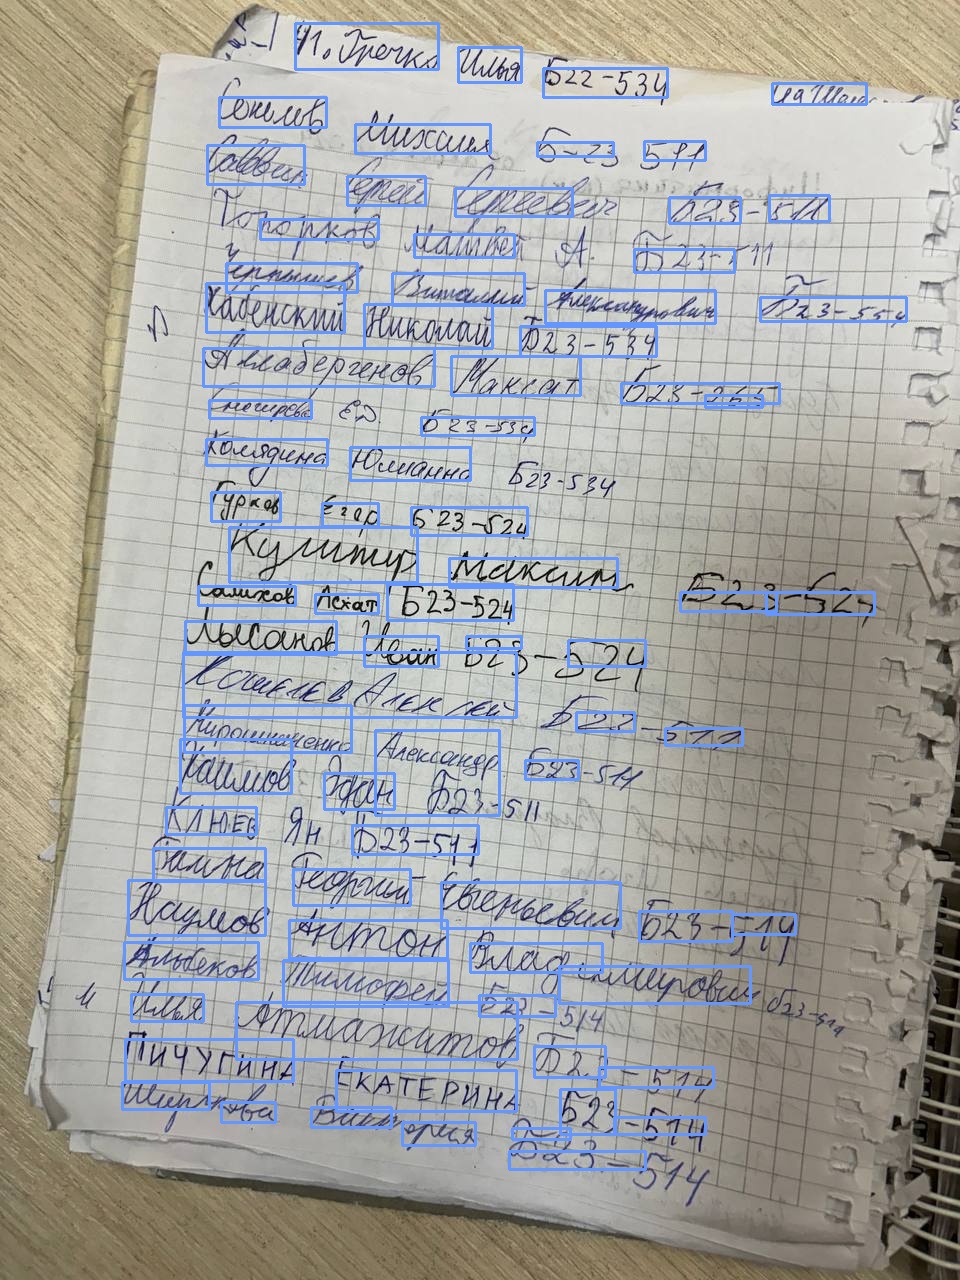 41. Гречко Илья Б22-534
Соколов Михаил Б-23 511
Саввин Сергей Сергеевич Б23-511
Топорков Матвей А. Б23-511
Чернышев Виталий Александрович Б23-554
Хабенский Николай Б23-534
Аллабергенов Максат Б23-
Снегирева Е.Д. Б23-534
Колядина Юлианна Б23-534
Гурков Егор Б23-524
Кушнир Максим Б23-524
Салихов Асхат Б23-524
Лысанов Иван Б23-524
Кошелев Алексей Б22-511
Мирошниченко Александр Б23-514
Каимов Эфан Б23-511
Клюев Ян Б23-511
Галына Георгий Евгеньевич Б23-514
Наумов Антон Владимирович Б23-514
Альбеков Тимофей Б23-514
Илья Атмажитов Б23-514
ПИЧУГИНА ЕКАТЕРИНА Б23-514
Широкова Виктория Б23-514